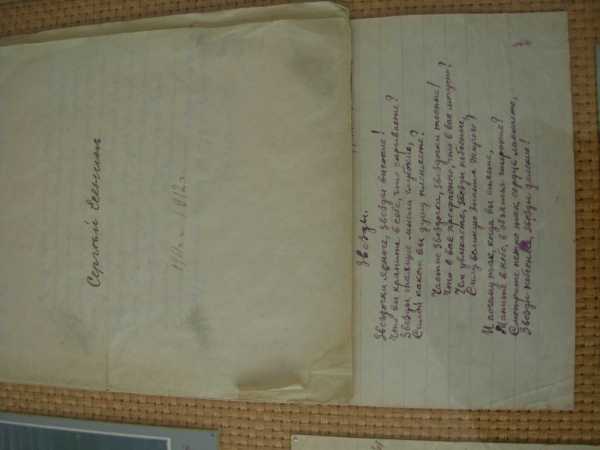 Сергей Есенин
1911 - 1912 г.
Звезды.
Звездочки ясные, звезды высокие!
Что вы храните в себе, что скрываете?
Звезды, таящие мысли глубокие,
Силой какою вы душу пленяете?
Частые звездочки, звездочки тесные!
Что в вас прекрасного, что в вас могучего?
Чем увлекаете, звезды небесные,
Силу великую знания жгучего?
И почему так, когда вы сияете,
Маните в небо, в объятья широкие?
Смотрите нежно так, сердце ласкаете,
Звезды небесные, звезды далекие!